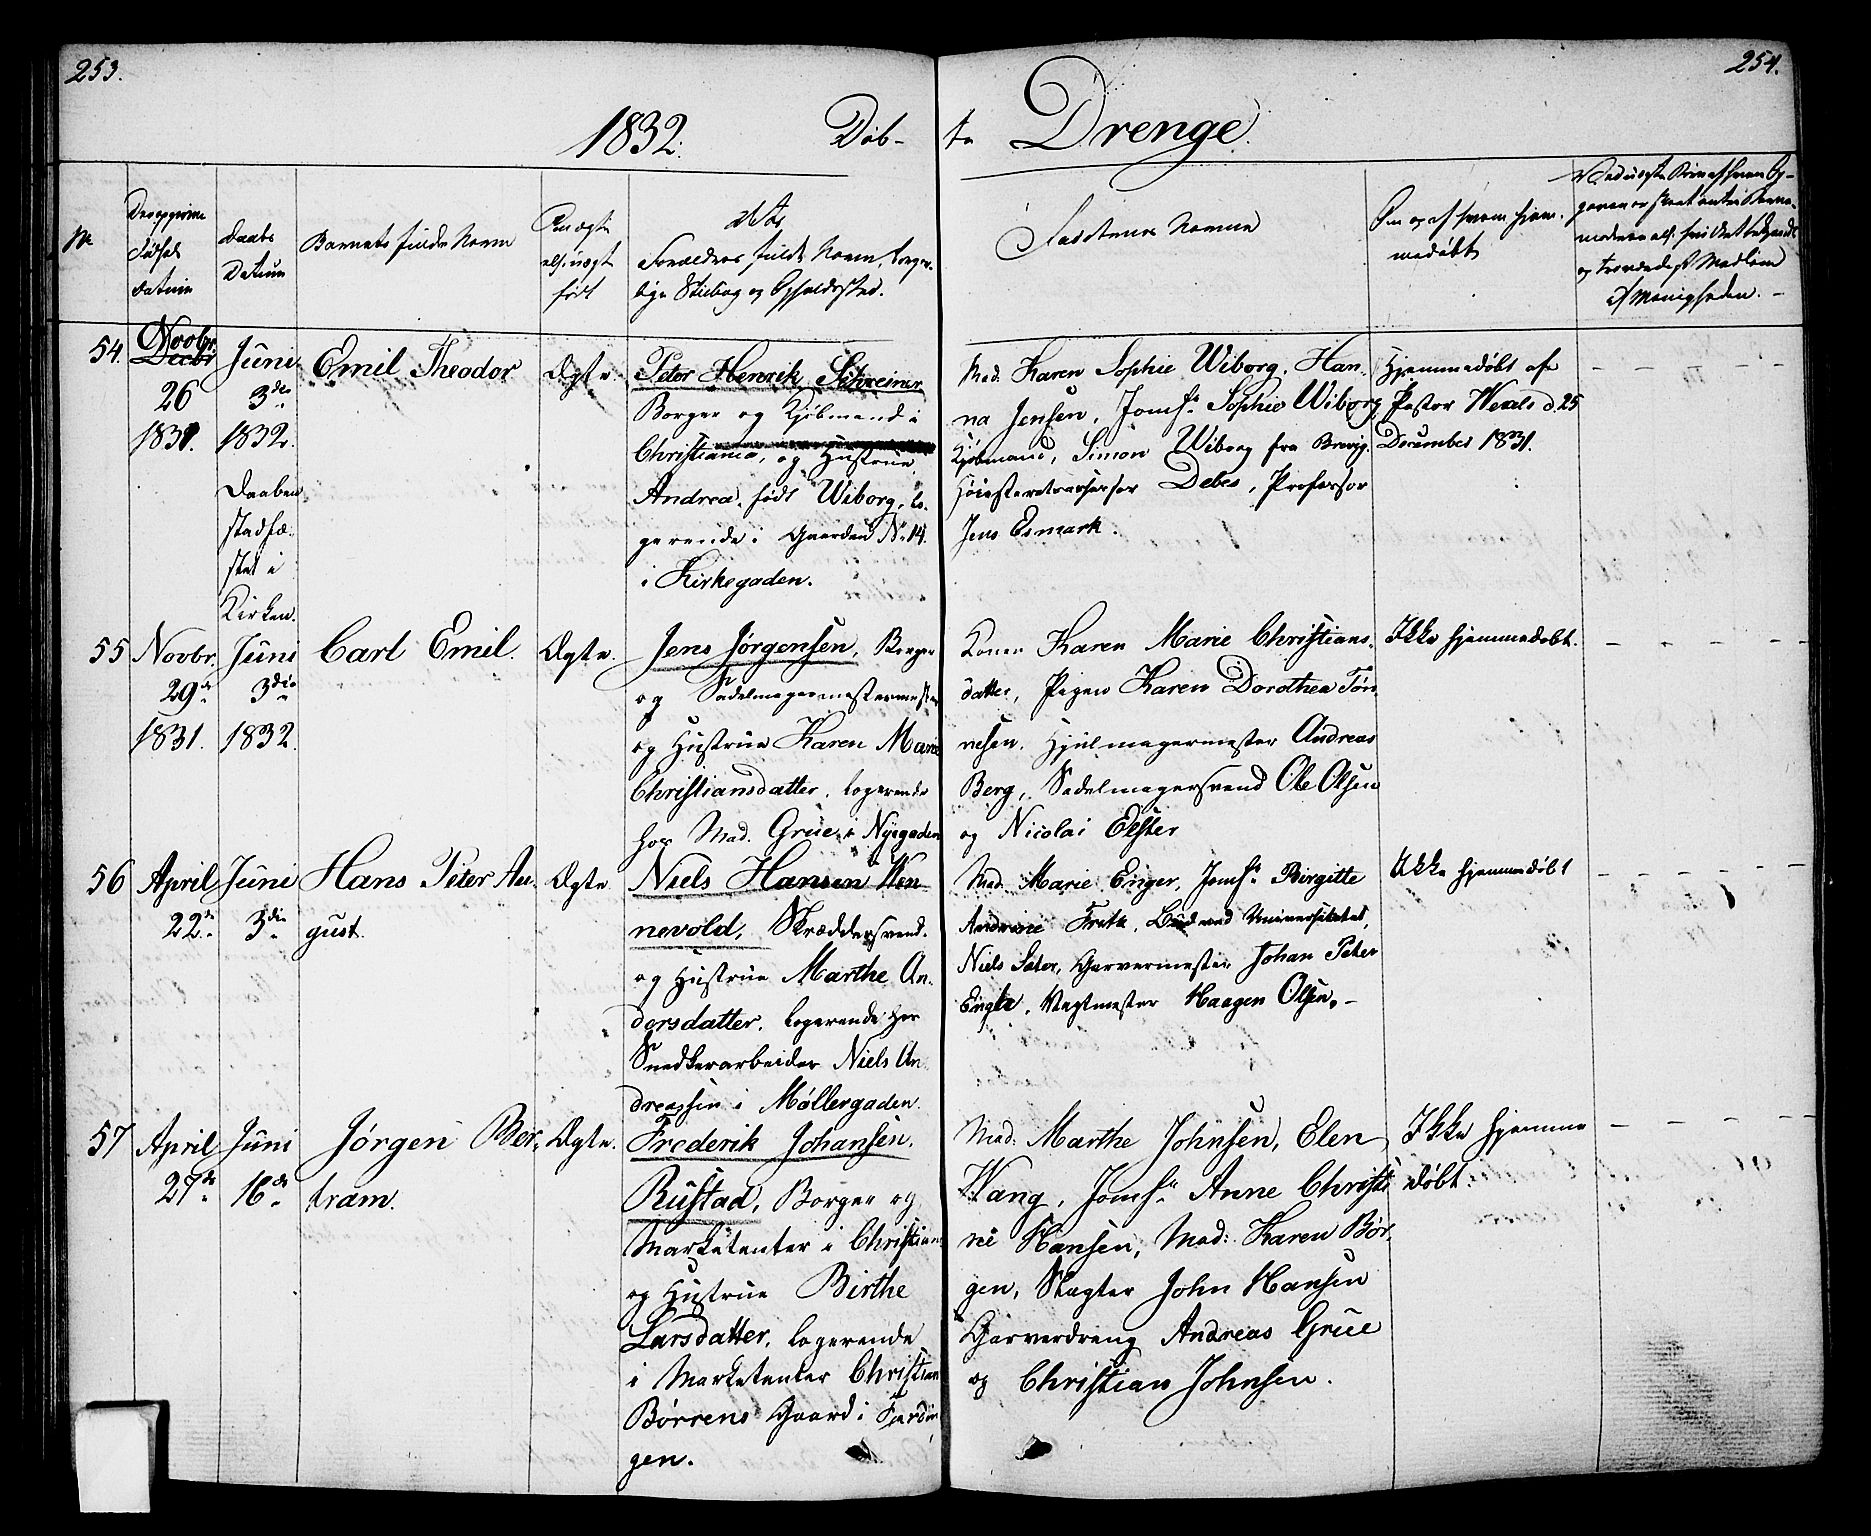 253.
254.
1832. Døb-
te Drenge.
No
Fødsels
Datum
Daabs
Datum
Barnets fulde Navn
Om ægte
født
Forældres fulde Navn, borger-
lige Stilling og Opholdssted.
Faddernes Navne
Om og af hvem hjem-
medøbt
af Menigheden. -
54.
Novbr.
Decbr
26
1831.
Juni
3die
1832.
Daaben
stadfæ-
stet i
Kirken.
Emil Theodor
Ægte
Peter Henrik Schreiner
Borger og Kjøbmand i
Christiania, og Hustrue
Andrea, født Wiborg, lo-
gerende i Gaarden No 14.
i Kirkegaden.
Mad. Karen Sophie Wiborg, Han-
na Jensen, Jomfr Sophie Wiborg,
Kjøbmand, Simon Wiborg fra Brevig,
Høiesteretsassessor Debes, Professor
Jens Esmark.
Hjemmedøbt af
Pastor Wexels d. 25
December 1831.
55
Novbr.
29de
1831.
Juni
3die
1832.
Carl Emil.
Ægte.
Jens Jørgensen, Borger
og Sadelmagermester
og Hustrue Karen Marie
Christiansdatter, logerende
hos Mad. Grüe i Nyegaden
Konen Karen Marie Christians-
datter, Pigen Karen Dorothea Tøn-
nesen, Hjulmagermester Andreas
Berg, Sadelmagersvend Ole Olsen
og Nicolai Elster
Ikke hjemmedøbt.
56
April
22de
Juni
3die
Hans Peter Au-
gust.
Ægte
Niels Hansen Wen-
nevold, Skræddersvend.
og Hustrue Marthe An-
dersdatter, logerende hos
Snedkerarbeider Niels An-
dreassen i Møllergaden.
Mad. Marie Enger, Jomfr Birgitte
Andrine Fritz, Bud ved Universitetet,
Niels Sæter, Garvermester Johan Peter
Engla, Vagtmester Haagen Olsen. -
Ikke hjemmedøbt
57
April
27de
Juni
16de
Jørgen Ber-
tram.
Ægte.
Frederik Johansen
Rustad, Borger og
Marketenter i Christiania
og Hustrue Birthe
Larsdatter, logerende
i Marketenter Christian
Børresens Gaard i Fjerdin-
gen.
Mad. Marthe Johnsen, Elen
Wang, Jomfr Anne Christi-
ne Hansen, Mad: Karen Bør-
gen, Slagter John Hansen
Garverdreng Andreas Grüe
og Christian Johnsen.
Ikke hjemme
døbt